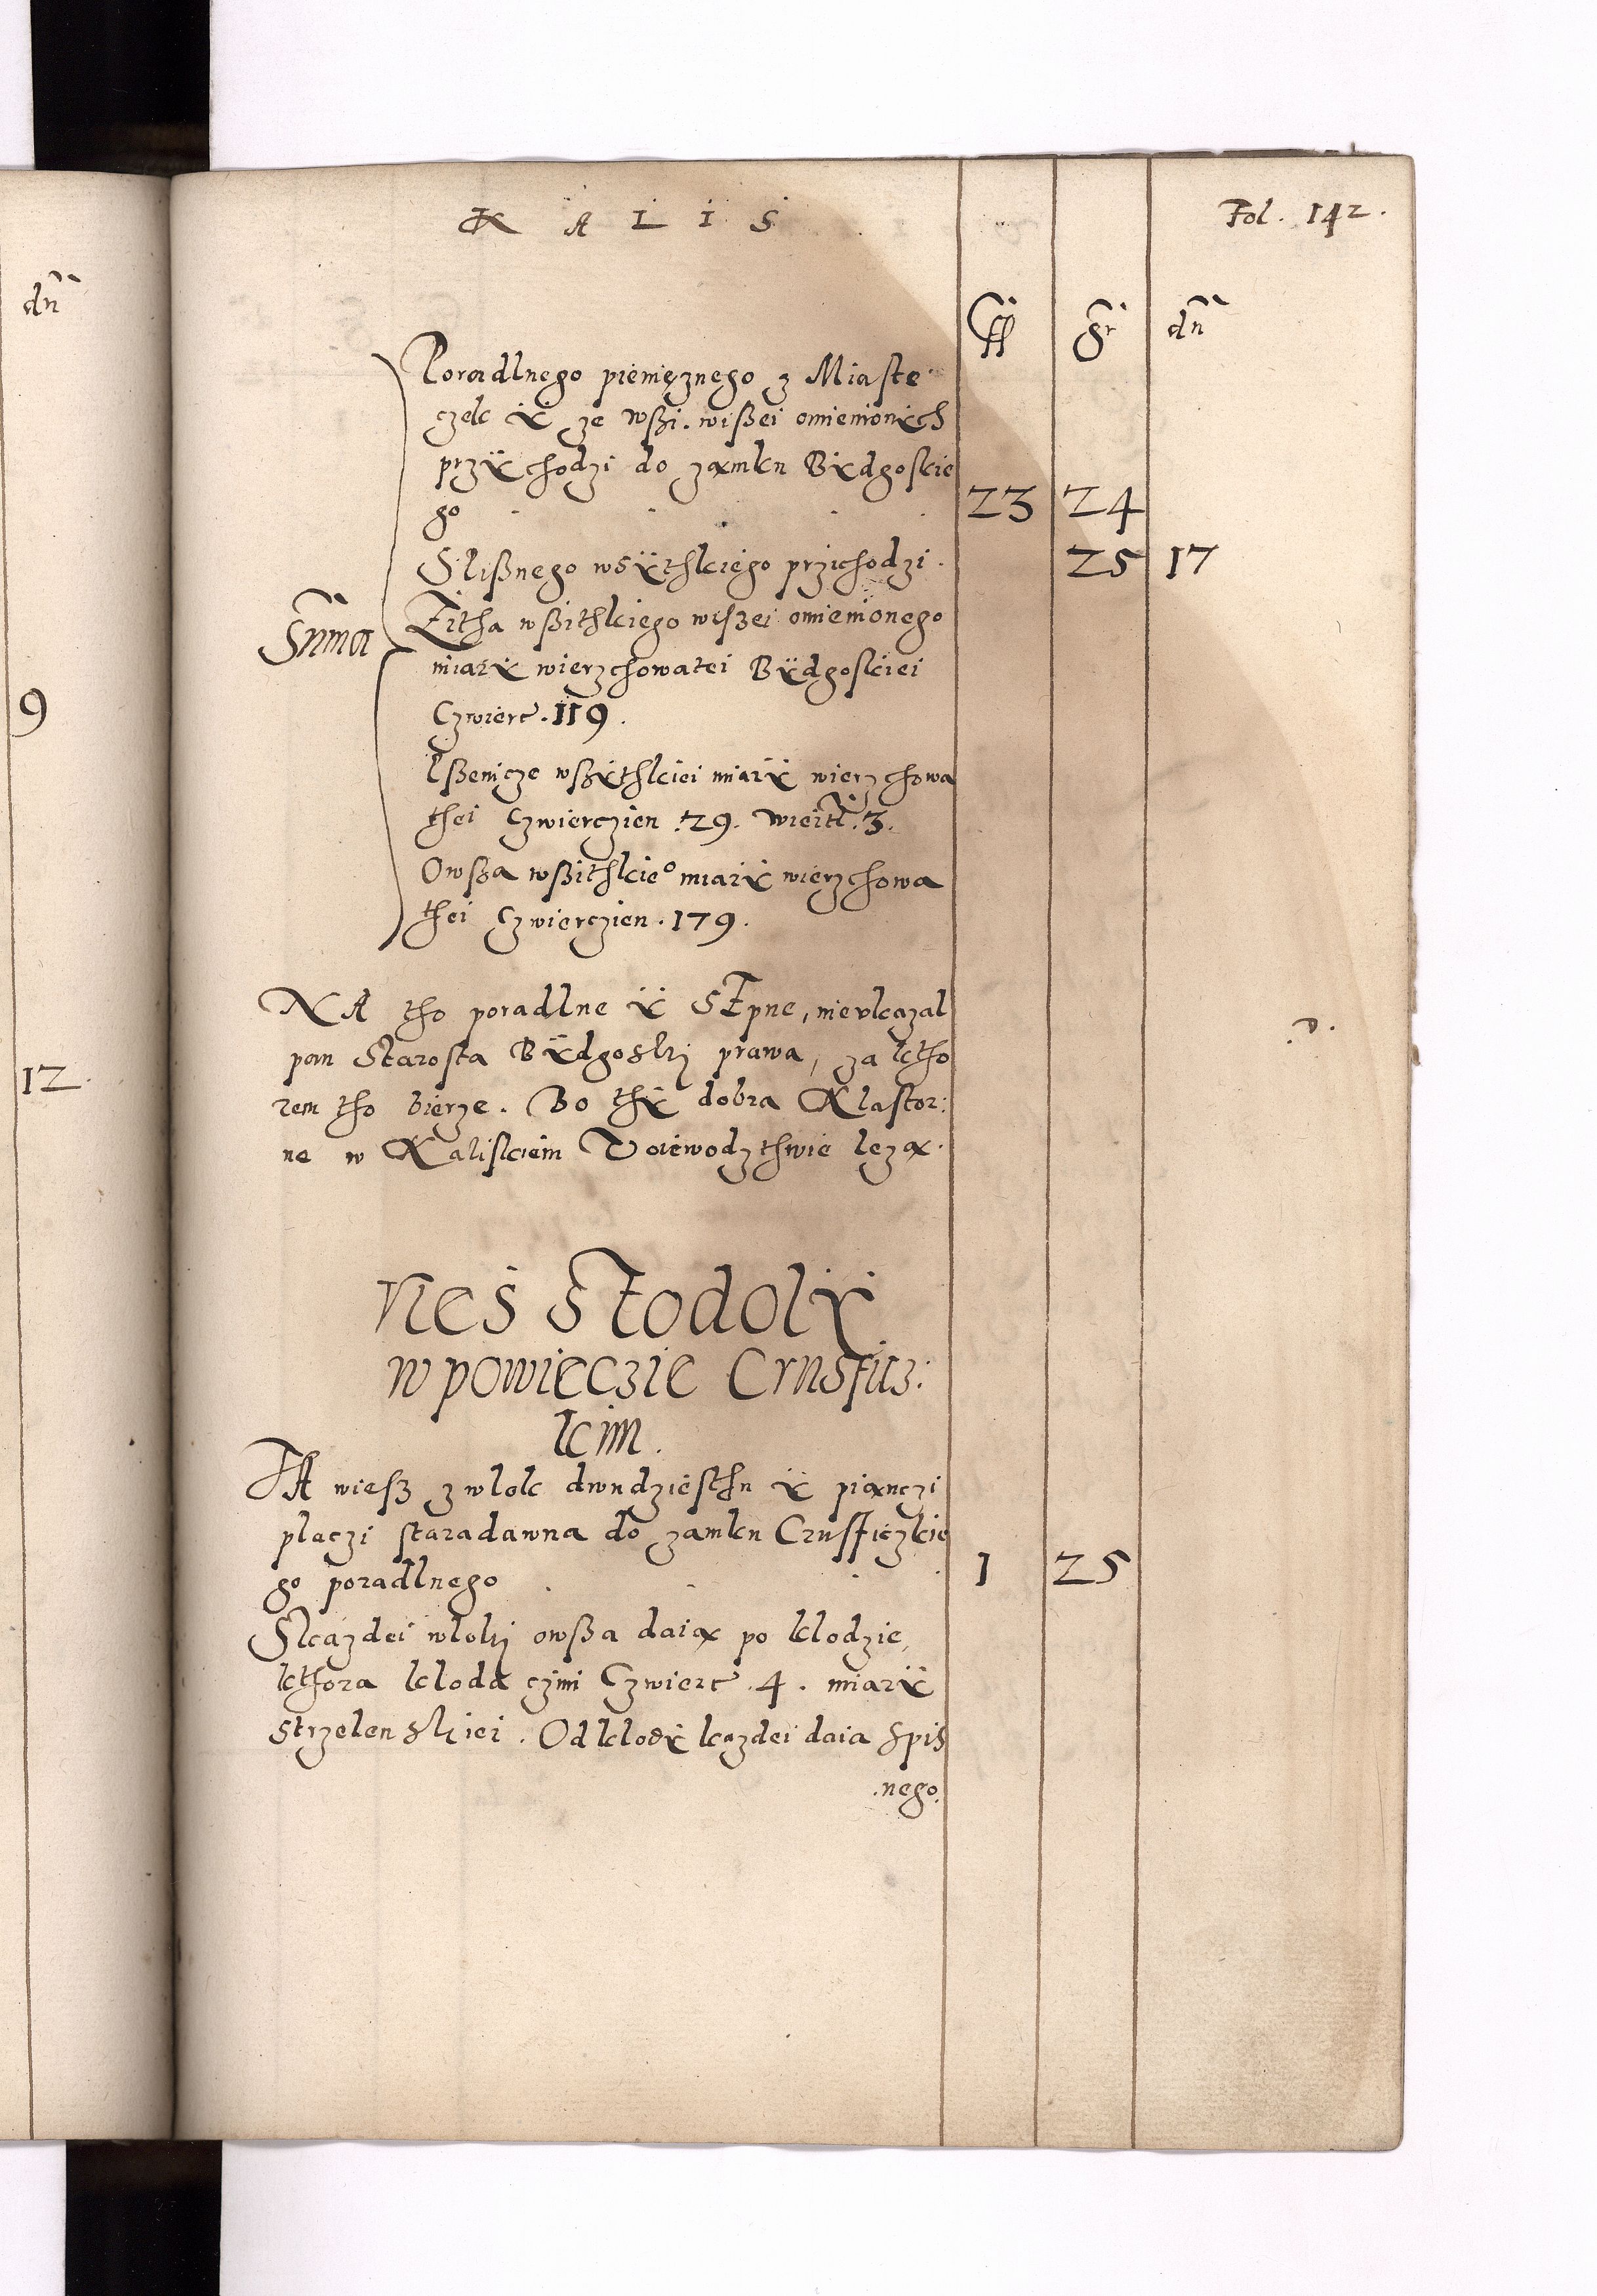 KALIS
Fol. 142.
dñ
fl gr dñ
Poradlnego pieniężnego z Miaste
czek ÿ ze wßi. wißei omienionÿch
przÿchodzi do zamku Bÿdgoskie
go . . . . . 23 24
Slißnego wsÿthkiego przichodzi. 25 17
Sũma
Zitha wßithkiego wißei omienionego
miarÿ wierzchowatei Bÿdgoskiei
Czwierc. 119.
Pßenicze wßÿthkiei miarÿ wierzchowa
thei Czwierczien .29. wiert. 3.
Owßa wßithkieº miarÿ wierzchowa
thei Czwierczien. 179.
9
NA tho poradlne ÿ SEpne, nieukazal
pan Starosta Bÿdgoski prawa, za ktho
rem tho bierze. Bo thÿ dobra Klastor:
ne w Kaliskiem Voiewodzthwie leżą.
12.
WIes Stodolÿ
w powieczie Crusfitz:
kim.
TA wiesz z wlok dwudziesthu ÿ pięnczi
placzi staradawna do zamku Crusfficzkie
go poradlnego . . . . 1 25
Skazdei wloki owßa daią po klodzie,
kthora kloda czini Czwierc .4. miarÿ
strzelenskiei. Od klodÿ kazdei daia Spis
nego.